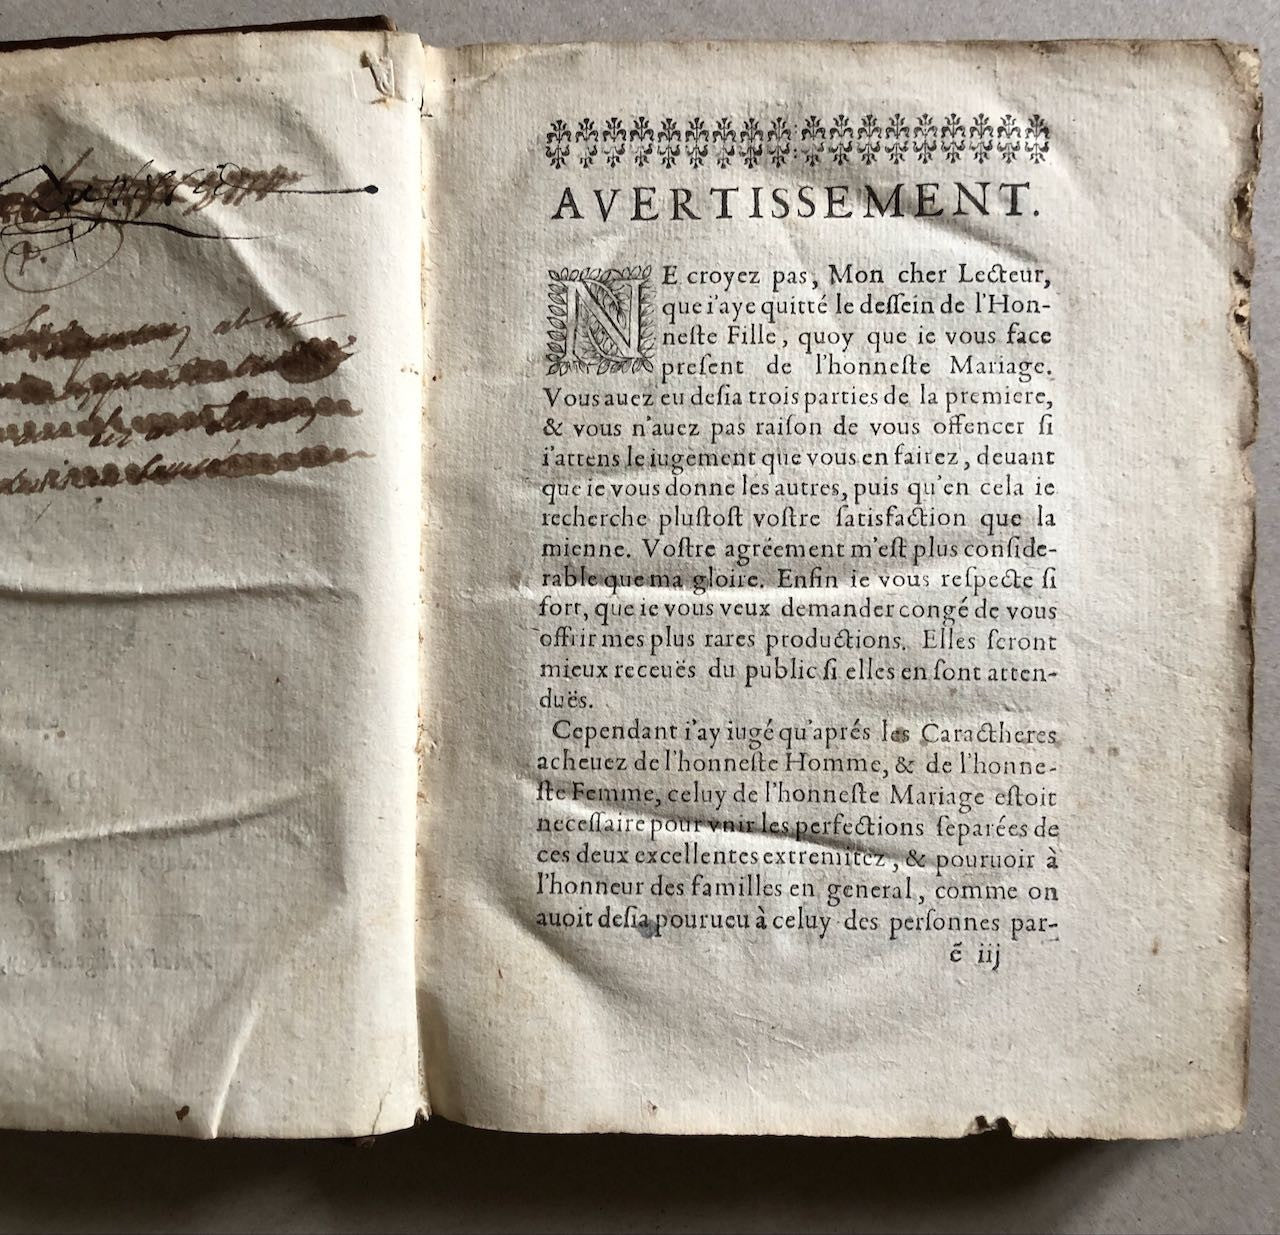 AVERTISSEMENT.
NE croyez pas, Mon cher Lecteur,
que i'aye quitté le deſſein de l'Hon-
neſte Fille, quoy que ie vous face
preſent de l'honneſte Mariage.
Vous auez eu deſia trois parties de la premiere,
& vous n'auez pas raiſon de vous offencer ſi
i'attens le iugement que vous en fairez, deuant
que ie vous donne les autres, puis qu'en cela ie
recherche pluſtoſt voſtre ſatisfaction que la
mienne. Voſtre agréement m'eſt plus conſide-
rable que ma gloire. Enfin ie vous reſpecte ſi
fort, que ie vous veux demander congé de vous
offrir mes plus rares productions. Elles ſeront
mieux receuës du public ſi elles en ſont atten-
duës.
Cependant i'ay iugé qu'aprés les Caractheres
acheuez de l'honneſte Homme, & de l'honne-
ſte Femme, celuy de l'honneſte Mariage eſtoit
neceſſaire pour vnir les perfections ſeparées de
ces deux excellentes extremitez, & pouruoir à
l'honneur des familles en general, comme on
auoit deſia pourueu à celuy des perſonnes par-
ẽ iij